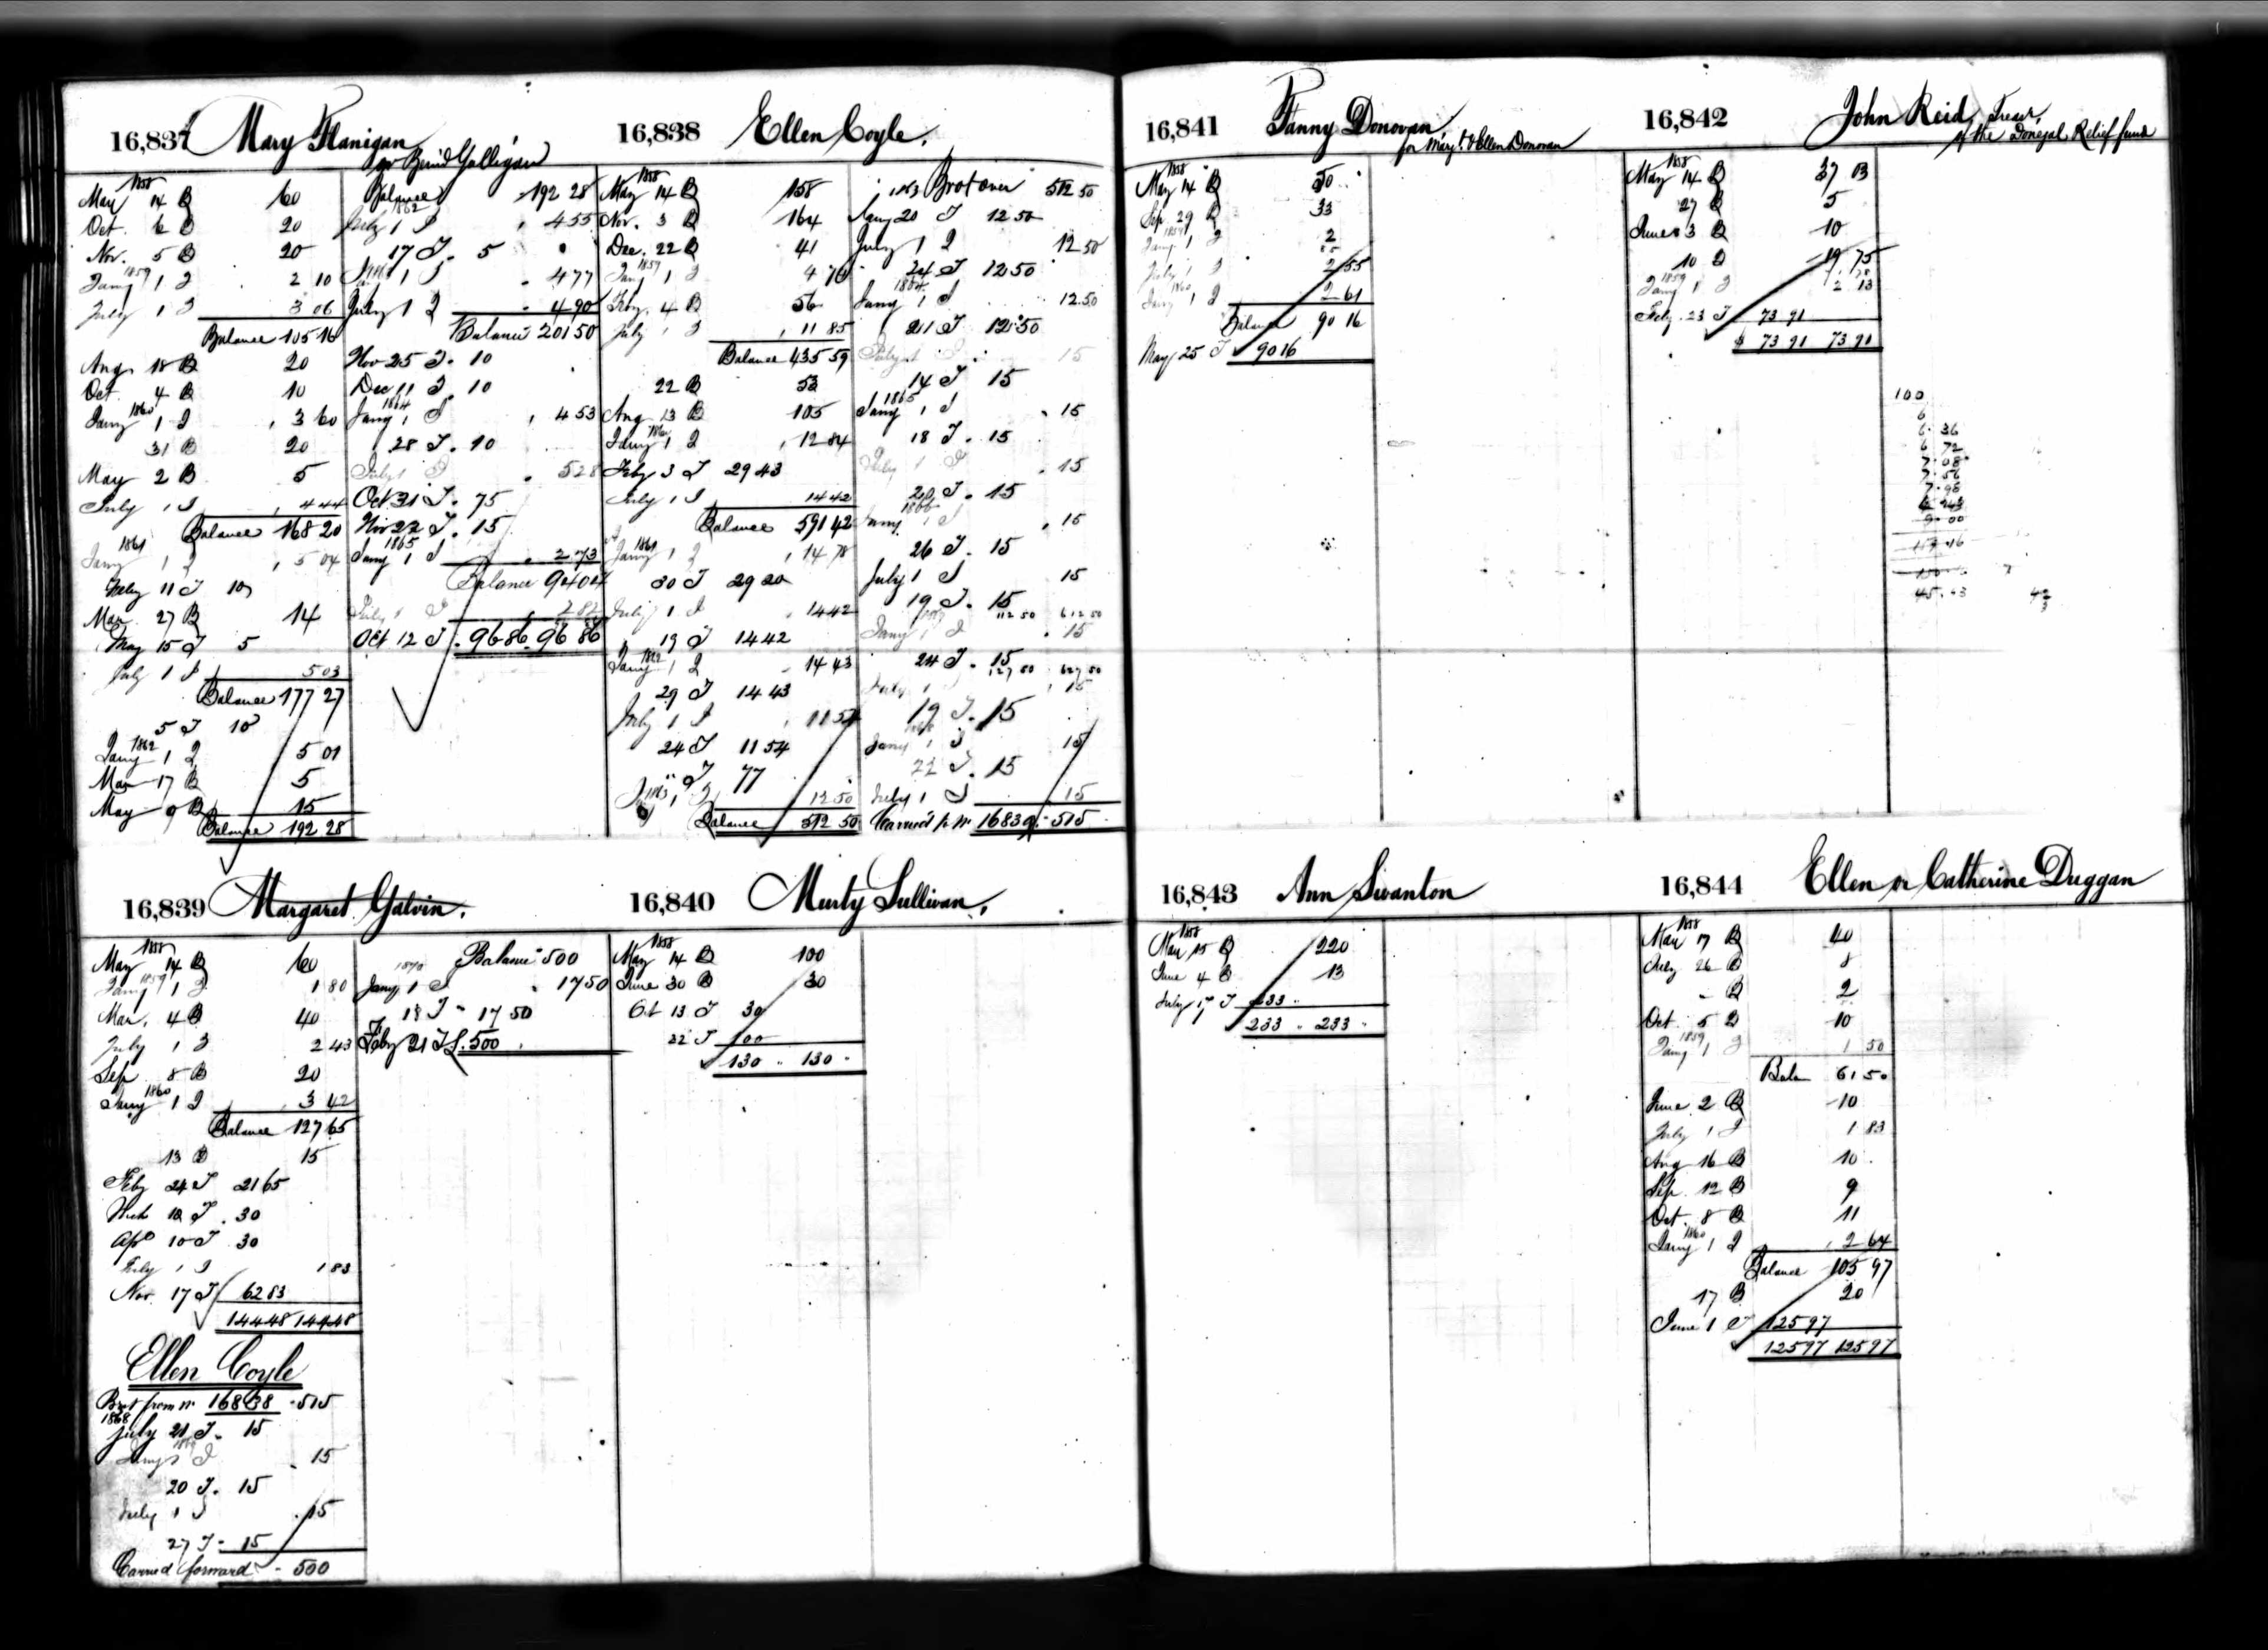 16,837 Mary Flanigan
or Bern'd Galligan
1858
May 14 B 60
Oct. 6 B 20
Nov. 5 B 20
1859
Jany 1 I 2 10
July 1 I 3 06
Balance 105 16
Aug. 18 B 20
Oct 4 B 10
1860
Jany 1 I 3 60
31 B 20
May 2 B 5
July 1 I 4 44
Balance 168 20
1861
Jany 1 I 5 04
July 11 T 10
Mar. 27 B 14
May 15 T 5
July 1 I 5 03
Balance 177 27
5 T 10
1862
Jany 1 I 5 01
Mar 17 B 5
May 9 B 15
Balance 192 28
Balance 192 28
1862
July 1 I 4 55
17 T. 5
Jany 1 I 4 77
July 1 I 4 90
Balance 201 50
Nov 25 T. 10
Dec 11 T. 10
1864
Jany 1 I 4 53
28 T. 10
July 1 I 5 28
Oct 31 T. 75
Nov 22 T. 15
1865
Jany 1 I 2 73
Balance 94 04
July 1 I 2 82
Oct 12 T. 96 86 96 86
16,838 Ellen Coyle.
1858
May 14 B 158
Nov. 3 B 164
Dec. 22 B 41
1859
Jany 1 I 4 76
4 B 56
July 1 I 11 85
Balance 435 59
22 B 53
Aug 13 B 105
1860
Jany 1 I 12 84
Feby 3 T 29 43
July 1 I 14 42
Balance 591 42
1861
Jany 1 I 14 78
30 T 29 20
July 1 I 14 42
19 T 14 42
1862
Jany 1 I 14 43
29 T 14 43
July 1 I 11 54
24 T 11 54
" T 77
1863
1 I 12 50
Balance 512 50
1863 Brot over 512 50
Jany 20 T 12 50
July 1 I 12 50
24 T 12 50
1864
Jany 1 I 12 50
21 T 12 50
July 1 I 15
14 T 15
1865
Jany 1 I 15
18 T. 15
July 1 I 15
20 T. 15
1866
Jany 1 I 15
26 T. 15
July 1 I 15
19 T. 15
1867 112 50 612 50
Jany 1 I 15
24 T. 15
127 50 627 50
July 1 I 15
19 T. 15
1868
Jany 1 I 15
22 T. 15
July 1 I 15
Carried to No 16839 515
16,839 Margaret Galvin.
1858
May 14 B 60
1859
Jany 1 I 1 80
Mar. 4 B 40
July 1 I 2 43
Sep 8 B 20
1860
Jany 1 I 3 42
Balance 127 65
13 B 15
Feby 24 T 21 65
10 T. 30
Apl 10 T 30
July 1 I 1 83
Nov. 17 T 62 83
144 48 144 48
Ellen Coyle
Brot from No 16838 515
1868
July 21 T. 15
1869
Jany 1 I 15
20 T. 15
July 1 I 15
27 T. 15
Carried forward 500
Balance 500
1870
Jany 1 I 17 50
18 T 17 50
Feby 21 T 500
16,840 Murty Sullivan.
1858
May 14 B 100
June 30 B 30
Oct 13 T 30
22 T 100
130 130
16,841 Fanny Donovan,
for Mary & Ellen Donovan
1858
May 14 B 50
Sep. 29 B 33
1859
Jany 1 I 2
July 1 I 2 55
1860
Jany 1 I 2 61
Balance 90 16
May 25 T 90 16
16,842 John Reid, Treas.
of the Donegal Relief fund
1858
May 14 B 37 13
27 B 5
June 3 B 10
10 B 19 75
1859
Jany 1 I 2 13
Feby. 23 T 73 91
$ 73 91 73 91
100
6
6.36
6 72
7.08
7.56
7.98
9.00
45.43
16,843 Ann Swanton
1858
May 15 B 220
June 4 B 13
July 17 T 233
233 233
16,844 Ellen or Catherine Duggan
1858
May 17 B 40
July 26 B 8
B 2
Oct 5 B 10
1859
Jany 1 I 1 50
Balan 61 50
June 2 B 10
July 1 I 1 83
Aug 16 B 10
Sep. 12 B 9
Oct. 8 B 11
1860
Jany 1 I 2 64
Balance 105 97
17 B 20
June 1 T 125 97
125 97 125 97